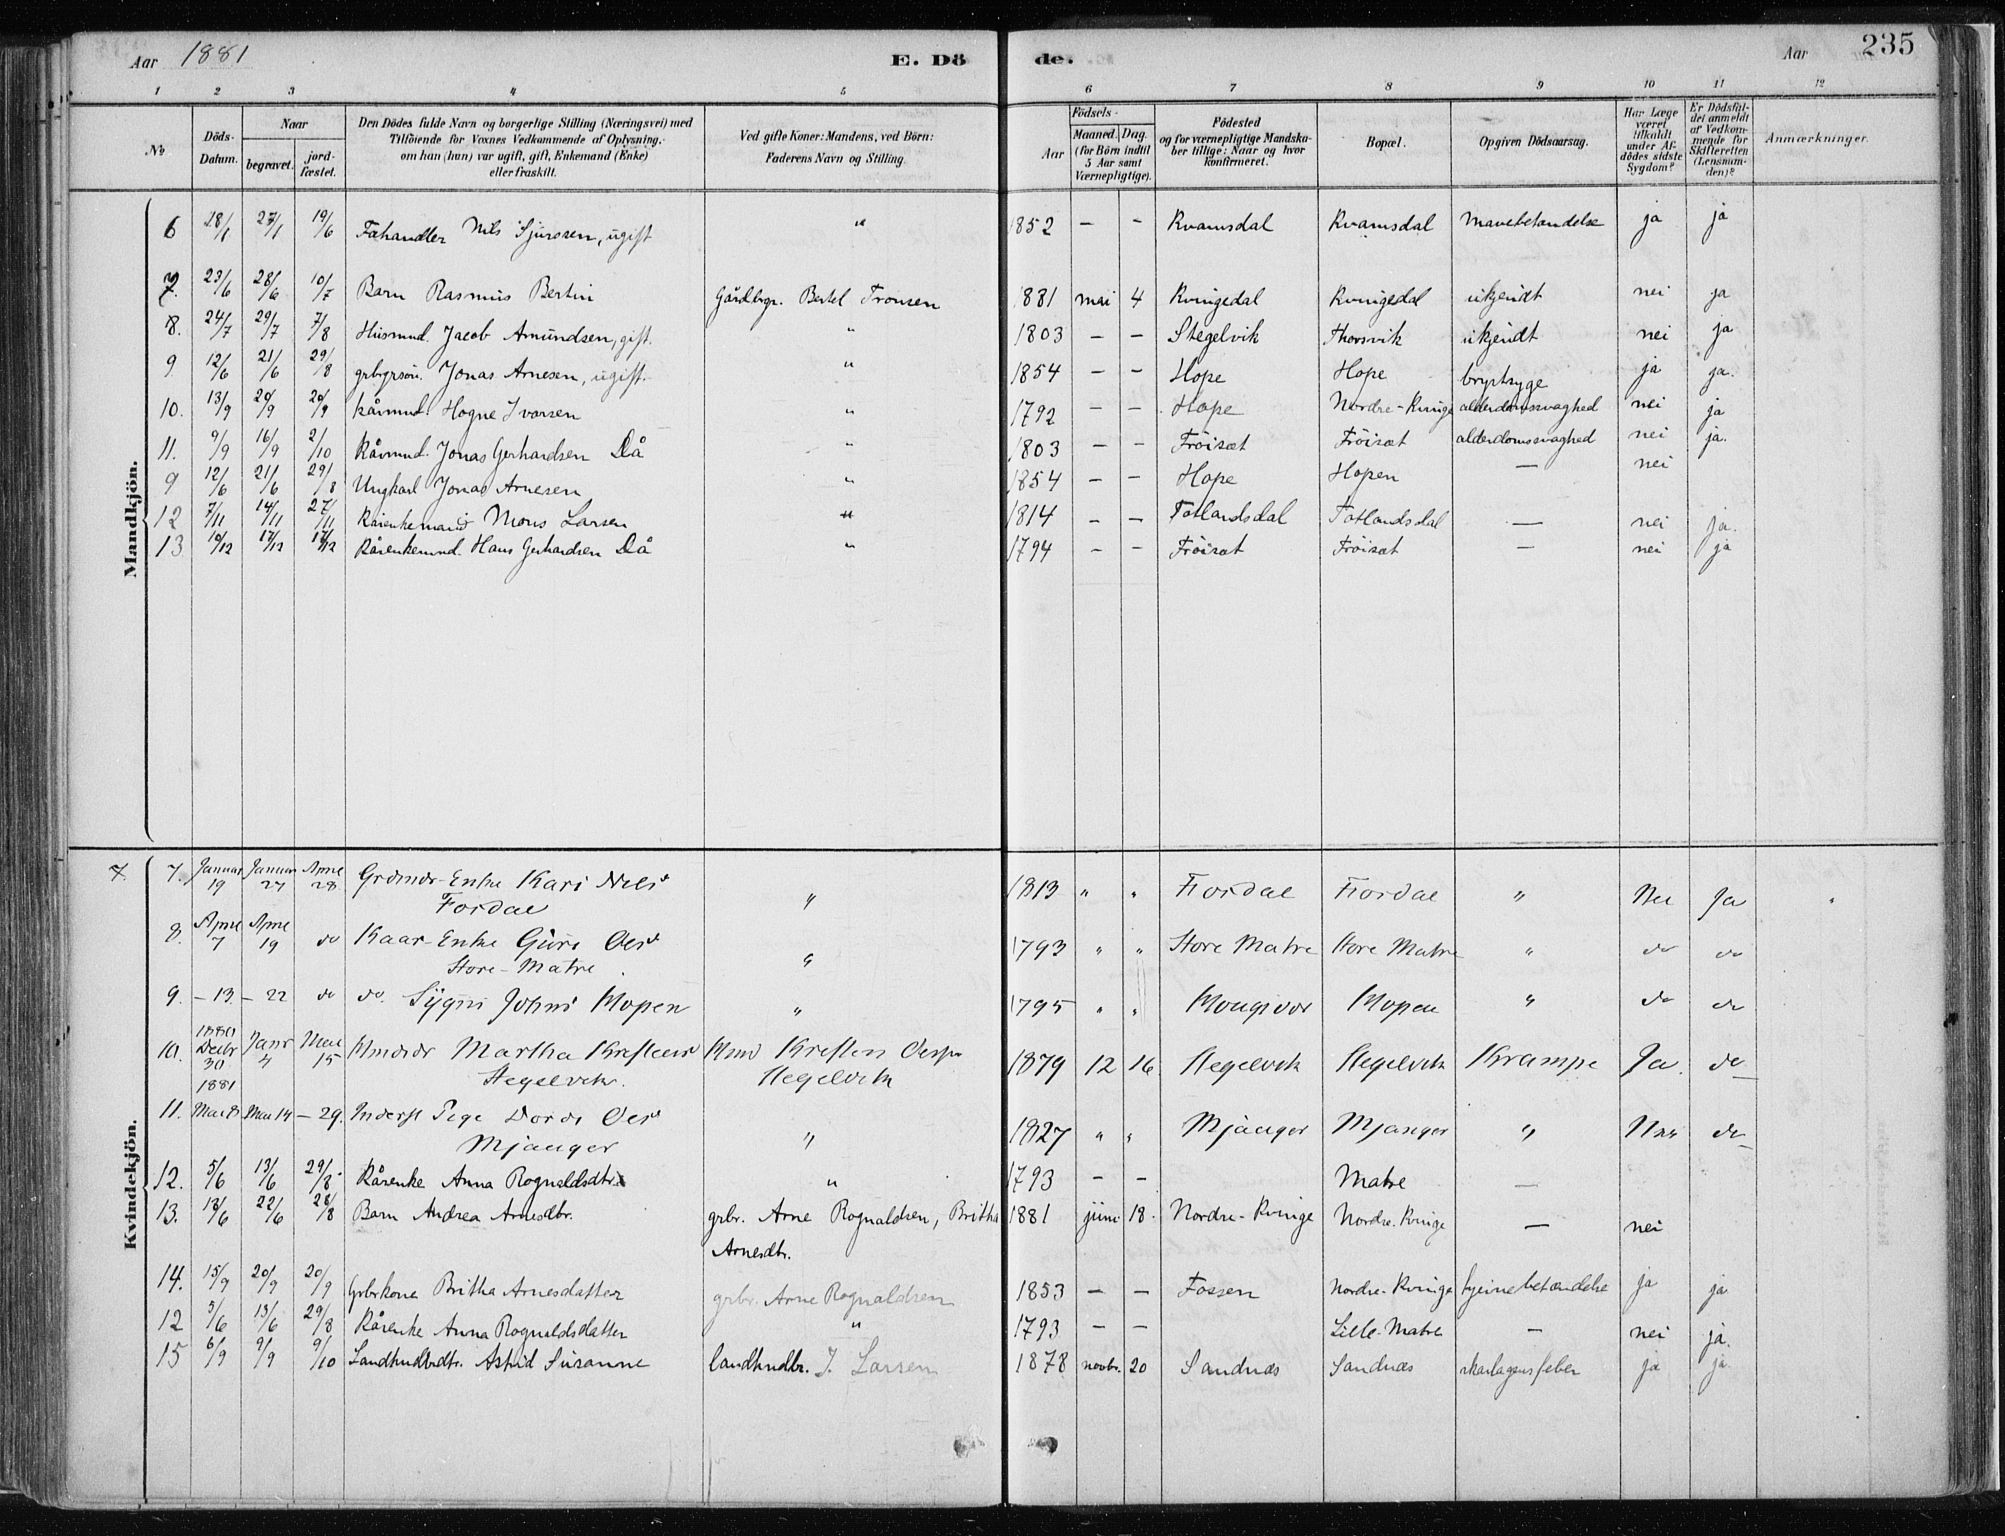 Aar 1881 E. Dö de. Aar 235
1 2 3 4 5 6 7 8 9 10 11 12
No
Döds-Datum.
Naar
begravet. jordfæstet.
Den Dödes fulde Navn og borgerlige Stilling (Næringsvei) med
Tilföiende for Voxnes Vedkommende af Oplysning,
om han (hun) var ugift, gift, Enkemand (Enke)
eller fraskilt.
Ved gifte Koner: Mandens, ved Börn:
Faderens Navn og Stilling.
Födsels-
Aar Maaned. Dag.
(for Börn indtil
5 Aar samt
Værnepligtige).
Födested
og for værnepligtige Mandskaber tillige: Naar og hvor
konfirmeret.
Bopæl.
Opgiven Dödsaarsag.
Har Læge
været
tilkaldt
under Afdödes sidste
Sygdom?
Er Dödsfaldet anmeldt
af Vedkommende for
Skifteretten
(Lensmanden)?
Anmærkninger.
Mandkjön.
6 18/1 27/1 19/6 Fæhandler Nils Sjursen, ugift " 1852 – – Kvamsdal Kvamsdal Mavebetændelse ja ja
7. 23/6 28/6 10/7 Barn Rasmus Bertin Gårdbrgr. Bertel Tronsen 1881 mai 4 Kvingedal Kvingedal ukjendt nei ja
8. 24/7 29/7 7/8 Husmnd. Jacob Amundsen, gift. " 1803 – – Stegelvik Thorsvik ukjendt nei ja
9 12/6 21/6 29/8 grbrgrsön. Jonas Arnesen, ugift. " 1854 – – Hope Hope brystsyge ja ja.
10. 13/9 20/9 20/9 Kårmnd. Hogne Ivarsen " 1792 – – Hope Nordre-Kvinge alderdomssvaghed nei ja
11. 9/9 16/9 2/10 Kårmnd. Jonas Gerhardsen Då " 1803 – – Fröiset Fröiset alderdomssvaghed nei ja.
9 12/6 21/6 29/8 Ungkarl Jonas Arnesen " 1854 – – Hope Hopen – nei
12 7/11 14/11 27/11 Kårenkemand Mons Larsen " 1814 – – Totlandsdal Totlandsdal – nei ja.
13 10/12 17/12 17/12 Kårenkemnd. Hans Gerhardsen Då " 1794 – – Fröiset Fröiset – nei ja
Kvindekjön.
7. 7. Januar 19 Januar 27 April 28 Grdmds-Enke Kari Nilsd " 1813 " " Fiordal Fiordal " Nei Ja "
Fordal
8. April 7 April 19 do Kaar-Enke Guri Olsd " 1793 " " Store Matre Store Matre " do do
Store-Matre.
9. – 13. – 22 do do. Sygni Johnsd Hopen " 1795 " " Hougsvær Hopen " do do
10. 1880 Decbr 30 Janr 4 Mai 15 Hmdsdr Martha Kristensd Hmd Kristen Olsen 1879 12 16 Stegelvik Stegelvik Krampe Ja. do
1881 Stegelvik. Stegelvik
11. Mai 8 Mai 14 – 29. Inderst Pige Dordi Olsd " 1827 " " Mjanger Mjanger " Nei do
Mjanger
12. 5/6 13/6 29/8. Kårenke Anna Rognaldsdtr. " 1793 – – Matre –
13. 18/6 22/6 28/8 Barn Andrea Arnesdtr. grbr. Arne Rognaldsen, Britha 1881 juni 18. Nordre-Kvinge Nordre-Kvinge – nei
Arnesdtr.
14. 15/9 20/9 20/9 Grbrkone Britha Arnesdatter grbr. Arne Rognaldsen 1853 – – Fossen Nordre-Kvinge hjernebetændelse ja ja
12 5/6 13/6 29/8 Kårenke Anna Rognaldsdatter " 1793 – – Lille-Matre – nei ja.
15 6/9 9/9 9/10 Landhndlrdtr. Astrid Susanne landhndlr. J. Larsen 1878 novbr. 20 Sandnæs Sandnæs skarlagensfeber ja ja